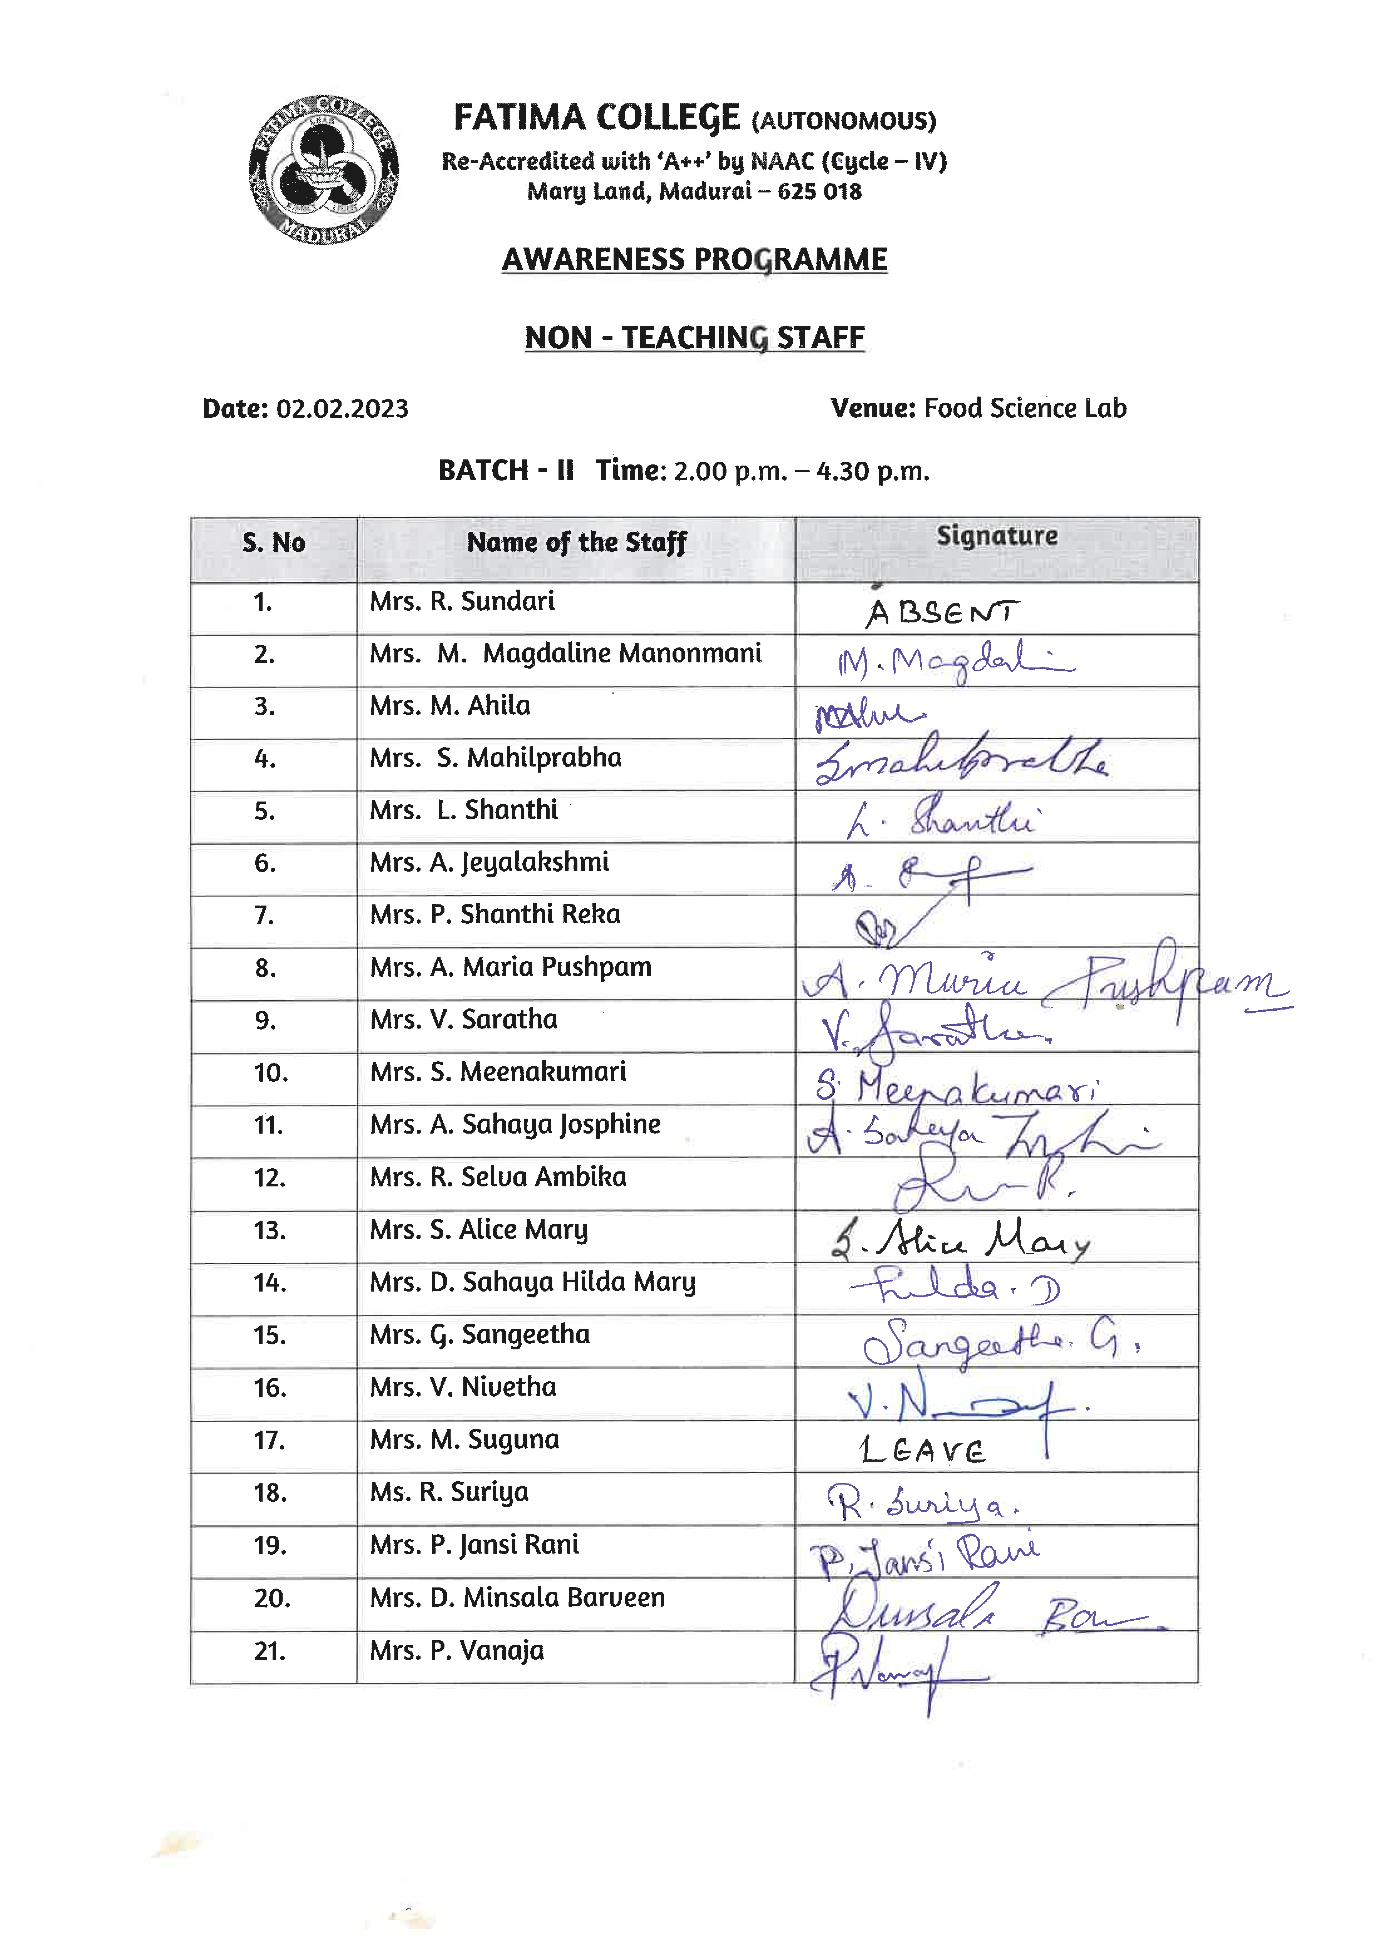 FATIMA COLLEGE MADURAI
FATIMA COLLEGE (AUTONOMOUS)
Re-Accredited with ‘A++’ by NAAC (Cycle – IV)
Mary Land, Madurai – 625 018
AWARENESS PROGRAMME
NON - TEACHING STAFF
Date: 02.02.2023 Venue: Food Science Lab
BATCH - II Time: 2.00 p.m. – 4.30 p.m.
S. No Name of the Staff Signature
1. Mrs. R. Sundari ABSENT
2. Mrs. M. Magdaline Manonmani M. Magdali
3. Mrs. M. Ahila
4. Mrs. S. Mahilprabha S mahilprabha
5. Mrs. L. Shanthi L. Shanthi
6. Mrs. A. Jeyalakshmi A.
7. Mrs. P. Shanthi Reka
8. Mrs. A. Maria Pushpam A. Maria Pushpam
9. Mrs. V. Saratha V. Saratha.
10. Mrs. S. Meenakumari S. Meenakumari
11. Mrs. A. Sahaya Josphine A. Sahaya
12. Mrs. R. Selva Ambika R.
13. Mrs. S. Alice Mary S. Alice Mary
14. Mrs. D. Sahaya Hilda Mary Hilda. D
15. Mrs. G. Sangeetha Sangeetha. G.
16. Mrs. V. Nivetha V. N
17. Mrs. M. Suguna LEAVE
18. Ms. R. Suriya R. Suriya.
19. Mrs. P. Jansi Rani P. Jansi Rani
20. Mrs. D. Minsala Barveen
21. Mrs. P. Vanaja P Vanaj